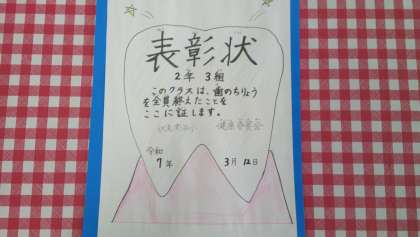 表彰状
2年 3組
このクラスは、歯のちりょう
を全員終えたことを
ここに証します。
健康委員会
令和
7年 3月 12日